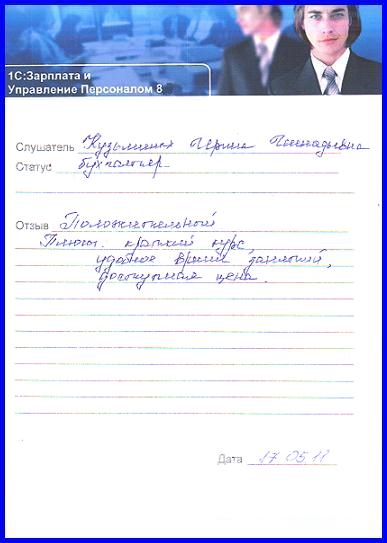 1С:Зарплата и
Управление Персоналом 8
Слушатель Кузьмина Ирина Геннадьевна
Статус бухгалтер
Отзыв Положительной
Плюсы: краткий курс,
удобное время занятий,
доступная цена.
Дата 17.05.11